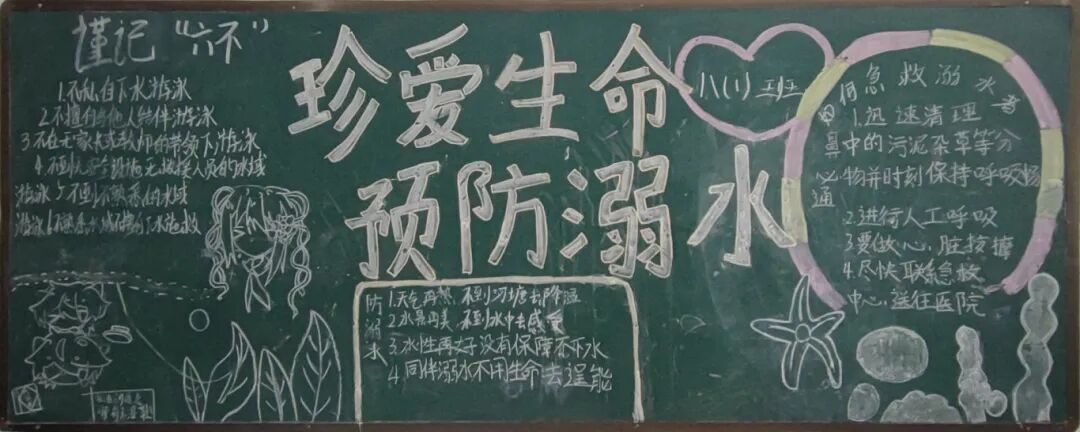 谨记“六不”
1.不私自下水游泳
2.不擅自与他人结伴游泳
3不在无家长或教师的带领下游泳
4.不到无安全设施无救援人员的水域
游泳 5不到不熟悉的水域
游泳 6不熟悉水性不擅自下水施救
珍爱生命
预防溺水
八(1)班
如何急救溺水者
1.迅速清理
口鼻中的污泥杂草等分
泌物并时刻保持呼吸畅
通
2.进行人工呼吸
3.要做心脏按摩
4.尽快联系急救
中心送往医院
防溺水
1.天气再热 不到河塘去降温
2.水景再美 不到水中去感受
3.水性再好没有保障不下水
4.同伴溺水不用生命去逞能